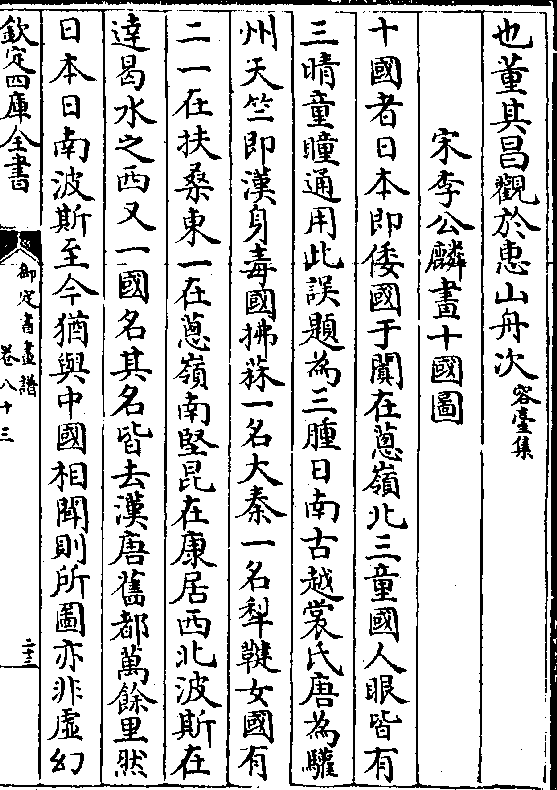 也董其昌觀於惠山舟次容臺集
宋李公麟畫十國圖
十國者日本即倭國于闐在蔥嶺北三童國人眼皆有
三睛童瞳通用此誤題為三腫日南古越裳氏唐為驩
州天竺即漢身毒國拂菻一名大秦一名犁鞬女國有
二一在扶桑東一在蔥嶺南堅昆在康居西北波斯在
達曷水之西又一國名其名皆去漢唐舊都萬餘里然
日本日南波斯至今猶與中國相聞則所圖亦非虛幻
欽定四庫全書
御定書畫譜
卷八十三
二十三